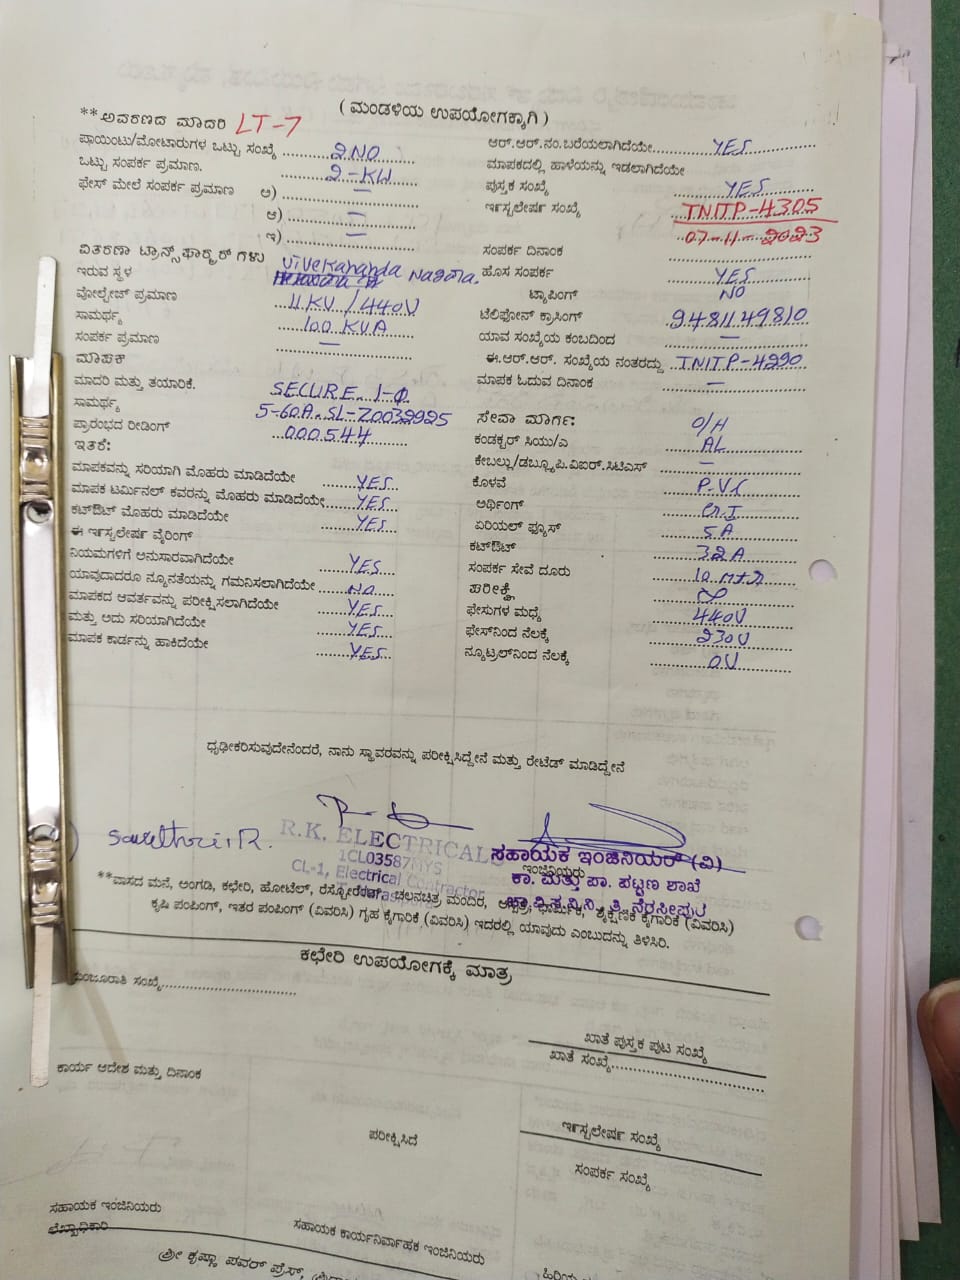 ( ಮಂಡಳಿಯ ಉಪಯೋಗಕ್ಕಾಗಿ )
**ಅವರಣದ ಮಾದರಿ LT-7
ಪ್ರಾಯಿಂಟು/ಮೋಟಾರುಗಳ ಒಟ್ಟು ಸಂಖ್ಯೆ 2NO
ಒಟ್ಟು ಸಂಪರ್ಕ ಪ್ರಮಾಣ. 2-KW
ಫೇಸ್ ಮೇಲೆ ಸಂಪರ್ಕ ಪ್ರಮಾಣ ಅ) —
ಆ) —
ಇ) —
ವಿತರಣಾ ಟ್ರಾನ್ಸ್‌ಫಾರ್ಮ್ರರ್ ಗಳು
ಇರುವ ಸ್ಥಳ Vivekananda Nagara.
ವೋಲ್ಟೇಜ್ ಪ್ರಮಾಣ 11 KV / 440V
ಸಾಮರ್ಥ್ಯ 100 KVA
ಸಂಪರ್ಕ ಪ್ರಮಾಣ —
ಮಾಪಕ
ಮಾದರಿ ಮತ್ತು ತಯಾರಿಕೆ. SECURE. 1-Φ
ಸಾಮರ್ಥ್ಯ 5-60A. SL-Z0032925
ಪ್ರಾರಂಭದ ರೀಡಿಂಗ್ 000544
ಇತರೆ:
ಮಾಪಕವನ್ನು ಸರಿಯಾಗಿ ಮೊಹರು ಮಾಡಿದೆಯೇ YES
ಮಾಪಕ ಟರ್ಮಿನಲ್ ಕವರನ್ನು ಮೊಹರು ಮಾಡಿದೆಯೇ YES
ಕಟ್‌ಔಟ್ ಮೊಹರು ಮಾಡಿದೆಯೇ YES
ಈ ಇನ್‌ಸ್ಟಲೇಷನ್ ವೈರಿಂಗ್
ನಿಯಮಗಳಿಗೆ ಅನುಸಾರವಾಗಿದೆಯೇ YES
ಯಾವುದಾದರೂ ನ್ಯೂನತೆಯನ್ನು ಗಮನಿಸಲಾಗಿದೆಯೇ NO
ಮಾಪಕದ ಆವರ್ತವನ್ನು ಪರೀಕ್ಷಿಸಲಾಗಿದೆಯೇ YES
ಮತ್ತು ಅದು ಸರಿಯಾಗಿದೆಯೇ YES
ಮಾಪಕ ಕಾರ್ಡನ್ನು ಹಾಕಿದೆಯೇ YES
ಆರ್.ಆರ್.ನಂ.ಬರೆಯಲಾಗಿದೆಯೇ YES
ಮಾಪಕದಲ್ಲಿ ಹಾಳೆಯನ್ನು ಇಡಲಾಗಿದೆಯೇ
ಪುಸ್ತಕ ಸಂಖ್ಯೆ YES
ಇನ್‌ಸ್ಟಲೇಷನ್ ಸಂಖ್ಯೆ TNITP-4305
07-11-2023
ಸಂಪರ್ಕ ದಿನಾಂಕ
ಹೊಸ ಸಂಪರ್ಕ YES
ಟ್ಯಾಪಿಂಗ್ NO
ಟೆಲಿಫೋನ್ ಕ್ರಾಸಿಂಗ್ 9481149810
ಯಾವ ಸಂಖ್ಯೆಯ ಕಂಬದಿಂದ —
ಈ.ಆರ್.ಆರ್. ಸಂಖ್ಯೆಯ ನಂತರದ್ದು TNITP-4290
ಮಾಪಕ ಓದುವ ದಿನಾಂಕ —
ಸೇವಾ ಮಾರ್ಗ: O/H
ಕಂಡಕ್ಟರ್ ಸಿಯು/ಎ AL
ಕೇಬಲ್ಲು/ಡಬ್ಲ್ಯೂ.ಪಿ.ವಿಐರ್.ಸಿಟಿಎಸ್ —
ಕೊಳವೆ P.V.C
ಅರ್ಥಿಂಗ್ G.I
ಏರಿಯಲ್ ಫ್ಯೂಸ್ 5A
ಕಟ್‌ಔಟ್ 32A
ಸಂಪರ್ಕ ಸೇವೆ ದೂರು 10 Mtr
ಪರೀಕ್ಷೆ
ಫೇಸುಗಳ ಮಧ್ಯೆ 440V
ಫೇಸ್‌ನಿಂದ ನೆಲಕ್ಕೆ 230V
ನ್ಯೂಟ್ರಲ್‌ನಿಂದ ನೆಲಕ್ಕೆ 0V
ಧೃಢೀಕರಿಸುವುದೇನೆಂದರೆ, ನಾನು ಸ್ಥಾವರವನ್ನು ಪರೀಕ್ಷಿಸಿದ್ದೇನೆ ಮತ್ತು ರೇಟೆಡ್ ಮಾಡಿದ್ದೇನೆ
Savethri.R.
R.K. ELECTRICALS
1CL03587MYS
CL-1, Electrical Contractor
ಸಹಾಯಕ ಇಂಜಿನಿಯರ್ (ವಿ)
ಇಂಜಿನಿಯರು
ಕಾ. ಮತ್ತು ಪಾ. ಪಟ್ಟಣ ಶಾಖೆ
ಚಾ.ವಿ.ಸ.ನಿ.ನಿ., ತಿ. ನರಸೀಪುರ
**ವಾಸದ ಮನೆ, ಅಂಗಡಿ, ಕಛೇರಿ, ಹೋಟೆಲ್, ರೆಸ್ಟೋರೆಂಟ್, ಚಲನಚಿತ್ರ ಮಂದಿರ, ಆಸ್ಪತ್ರೆ, ಧಾರ್ಮಿಕ, ಶೈಕ್ಷಣಿಕ ಕೈಗಾರಿಕೆ (ವಿವರಿಸಿ)
ಕೃಷಿ ಪಂಪಿಂಗ್, ಇತರ ಪಂಪಿಂಗ್ (ವಿವರಿಸಿ) ಗೃಹ ಕೈಗಾರಿಕೆ (ವಿವರಿಸಿ) ಇದರಲ್ಲಿ ಯಾವುದು ಎಂಬುದನ್ನು ತಿಳಿಸಿರಿ.
ಕಛೇರಿ ಉಪಯೋಗಕ್ಕೆ ಮಾತ್ರ
ಮಂಜೂರಾತಿ ಸಂಖ್ಯೆ
ಖಾತೆ ಪುಸ್ತಕ ಪುಟ ಸಂಖ್ಯೆ
ಖಾತೆ ಸಂಖ್ಯೆ
ಕಾರ್ಯ ಆದೇಶ ಮತ್ತು ದಿನಾಂಕ
ಪರೀಕ್ಷಿಸಿದೆ
ಇನ್‌ಸ್ಟಲೇಷನ್ ಸಂಖ್ಯೆ
ಸಂಪರ್ಕ ಸಂಖ್ಯೆ
ಸಹಾಯಕ ಇಂಜಿನಿಯರು
ಲೆಖ್ಖಾಧಿಕಾರಿ
ಸಹಾಯಕ ಕಾರ್ಯನಿರ್ವಾಹಕ ಇಂಜಿನಿಯರು
ಶ್ರೀ ಕೃಷ್ಣಾ ಪವರ್ ಪ್ರೆಸ್,